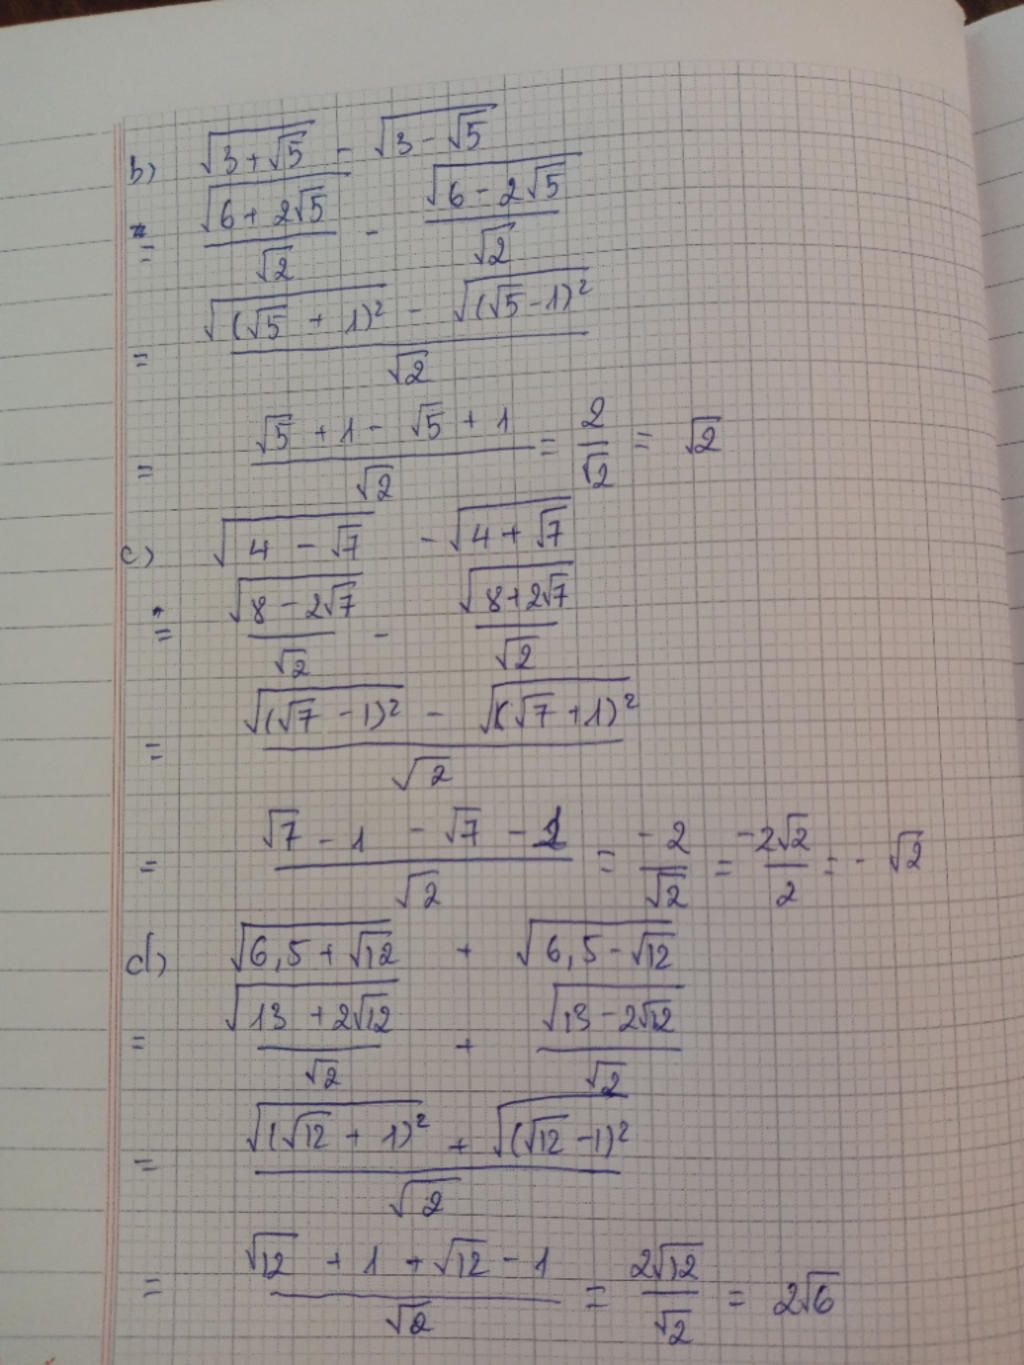 b) √(3 + √5) - √(3 - √5)
= √(6 + 2√5)/√2 - √(6 - 2√5)/√2
= (√((√5 + 1)²) - √((√5 - 1)²))/√2
= (√5 + 1 - √5 + 1)/√2 = 2/√2 = √2
c) √(4 - √7) - √(4 + √7)
= √(8 - 2√7)/√2 - √(8 + 2√7)/√2
= (√((√7 - 1)²) - √((√7 + 1)²))/√2
= (√7 - 1 - √7 - 1)/√2 = -2/√2 = -2√2/2 = - √2
d) √(6,5 + √12) + √(6,5 - √12)
= √(13 + 2√12)/√2 + √(13 - 2√12)/√2
= (√((√12 + 1)²) + √((√12 - 1)²))/√2
= (√12 + 1 + √12 - 1)/√2 = 2√12/√2 = 2√6